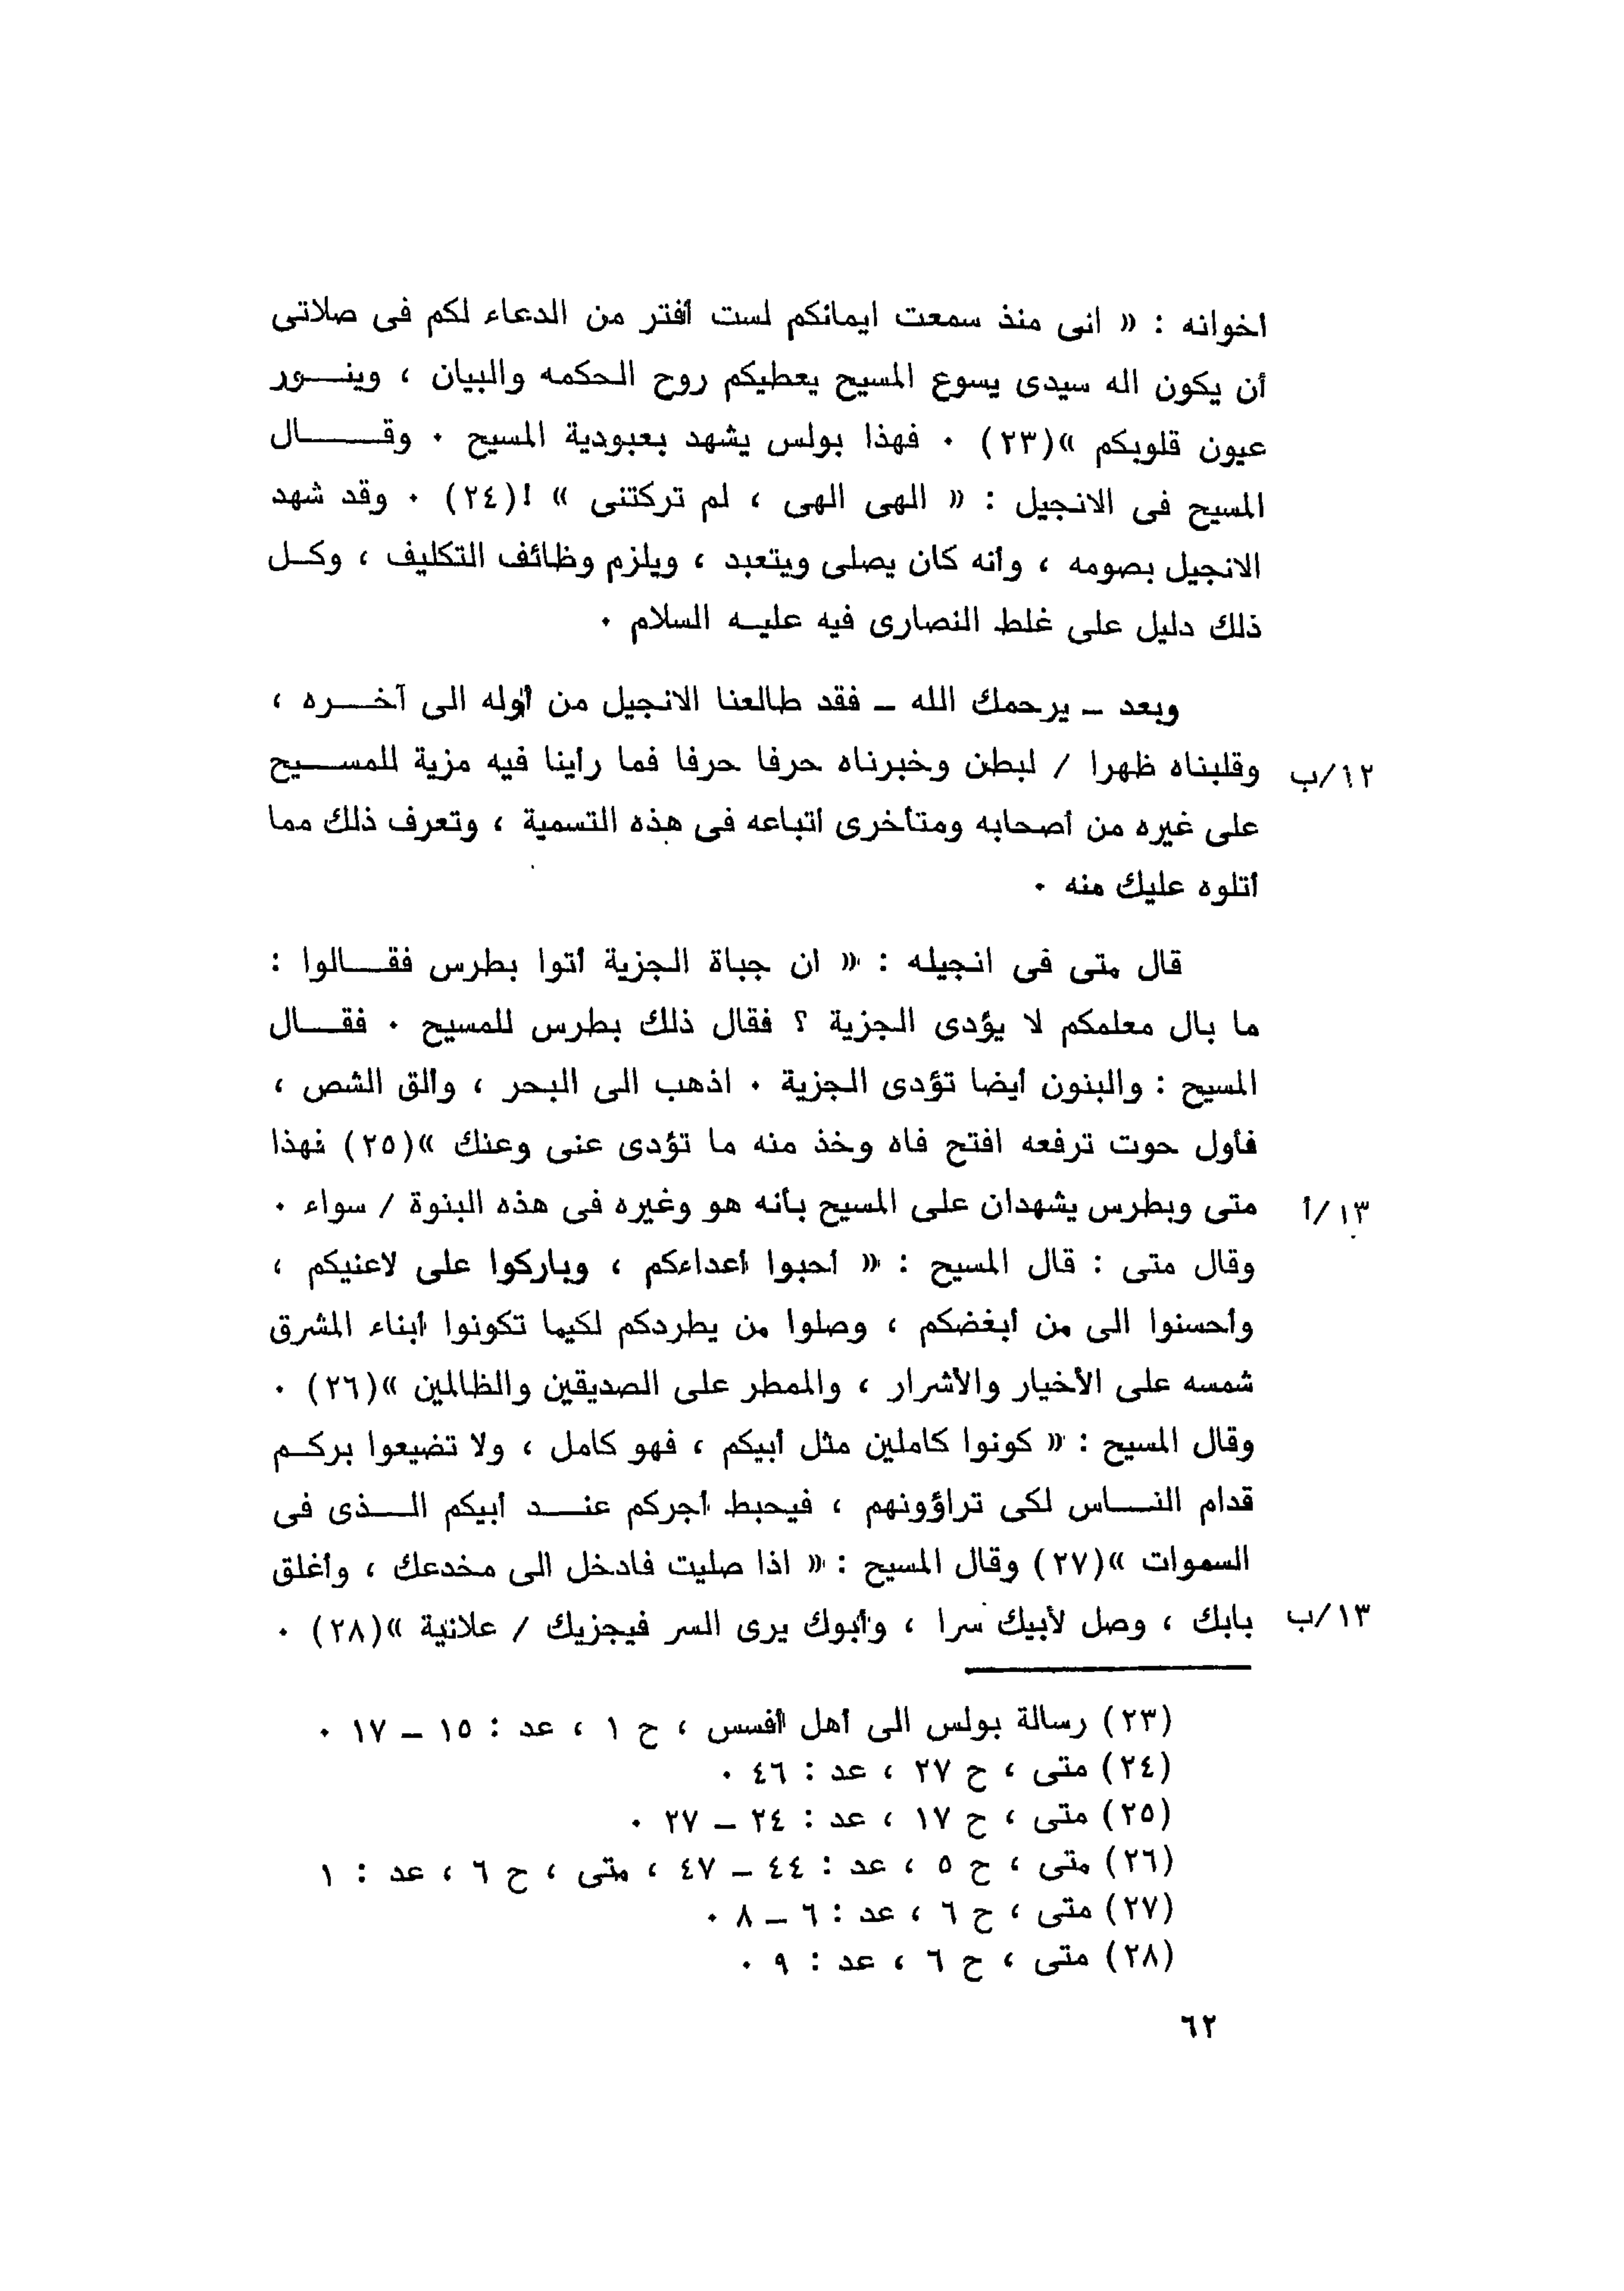 أخوانه : « انى منذ سمعت ايمانكم لست أفتر من الدعاء لكم فى صلاتى
أن يكون اله سيدى يسوع المسيح يعطيكم روح الحكمه والبيان ، وينـــور
عيون قلوبكم »(٢٣) ٠ فهذا بولس يشهد بعبودية المسيح ٠ وقـــــال
المسيح فى الانجيل : « الهى الهى ، لم تركتنى » !(٢٤) ٠ وقد شهد
الانجيل بصومه ، وأنه كان يصلى ويتعبد ، ويلزم وظائف التكليف ، وكـل
ذلك دليل على غلط النصارى فيه عليـه السلام ٠
وبعد ـ يرحمك الله ـ فقد طالعنا الانجيل من أوله الى آخـــره ،
١٢/ب وقلبناه ظهرا / لبطن وخبرناه حرفا حرفا فما رأينا فيه مزية للمســـيح
على غيره من أصحابه ومتأخرى أتباعه فى هذه التسمية ، وتعرف ذلك مما
أتلوه عليك منه ٠
قال متى فى انجيله : « ان جباة الجزية أتوا بطرس فقـــالوا :
ما بال معلمكم لا يؤدى الجزية ؟ فقال ذلك بطرس للمسيح ٠ فقـــال
المسيح : والبنون أيضا تؤدى الجزية ٠ اذهب الى البحر ، وألق الشص ،
فأول حوت ترفعه افتح فاه وخذ منه ما تؤدى عنى وعنك »(٢٥) فهذا
١٣/أ متى وبطرس يشهدان على المسيح بأنه هو وغيره فى هذه البنوة / سواء ٠
وقال متى : قال المسيح : « أحبوا أعداءكم ، وباركوا على لاعنيكم ،
وأحسنوا الى من أبغضكم ، وصلوا من يطردكم لكيما تكونوا أبناء المشرق
شمسه على الأخيار والأشرار ، والممطر على الصديقين والظالمين »(٢٦) ٠
وقال المسيح : « كونوا كاملين مثل أبيكم ، فهو كامل ، ولا تضيعوا بركـم
قدام النـــاس لكى تراؤونهم ، فيحبط أجركم عنـــد أبيكم الـــذى فى
السموات »(٢٧) وقال المسيح : « اذا صليت فادخل الى مخدعك ، وأغلق
١٣/ب بابك ، وصل لأبيك سرا ، وأبوك يرى السر فيجزيك / علانية »(٢٨) ٠
(٢٣) رسالة بولس الى أهل أفسس ، ح ١ ، عد : ١٥ ـ ١٧ ٠
(٢٤) متى ، ح ٢٧ ، عد : ٤٦ ٠
(٢٥) متى ، ح ١٧ ، عد : ٢٤ ـ ٢٧ ٠
(٢٦) متى ، ح ٥ ، عد : ٤٤ ـ ٤٧ ، متى ، ح ٦ ، عد : ١
(٢٧) متى ، ح ٦ ، عد : ٦ ـ ٨ ٠
(٢٨) متى ، ح ٦ ، عد : ٩ ٠
٦٢